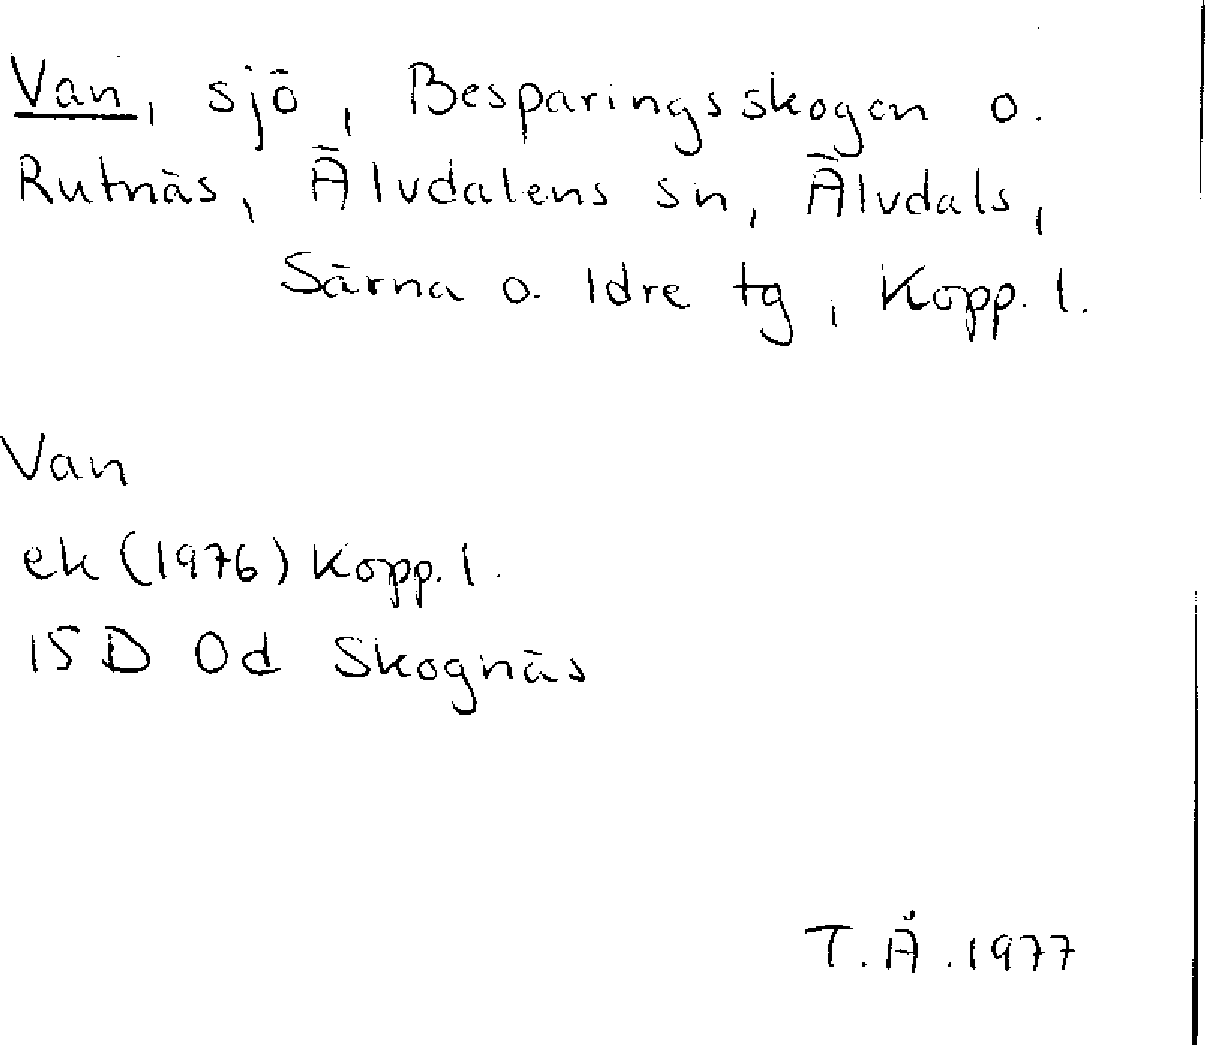 Van, sjö, Besparingsskogen o.
Rutnäs, Älvdalens sn, Älvdals,
Särna o. Idre tg, Kopp. l.
Van
ek (1976) Kopp. l.
15 D 0d Skognäs
T. Å. 1977